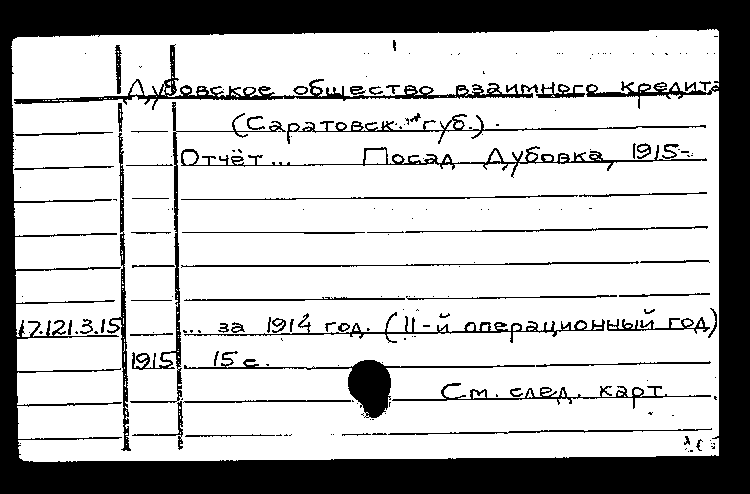 Дубовское общество взаимного кредита
(Саратовск. губ.).
Отчёт... Посад Дубовка, 1915-
17.121.3.15 ... за 1914 год. (11-й операционный год)
1915. 15 с.
См. след. карт.